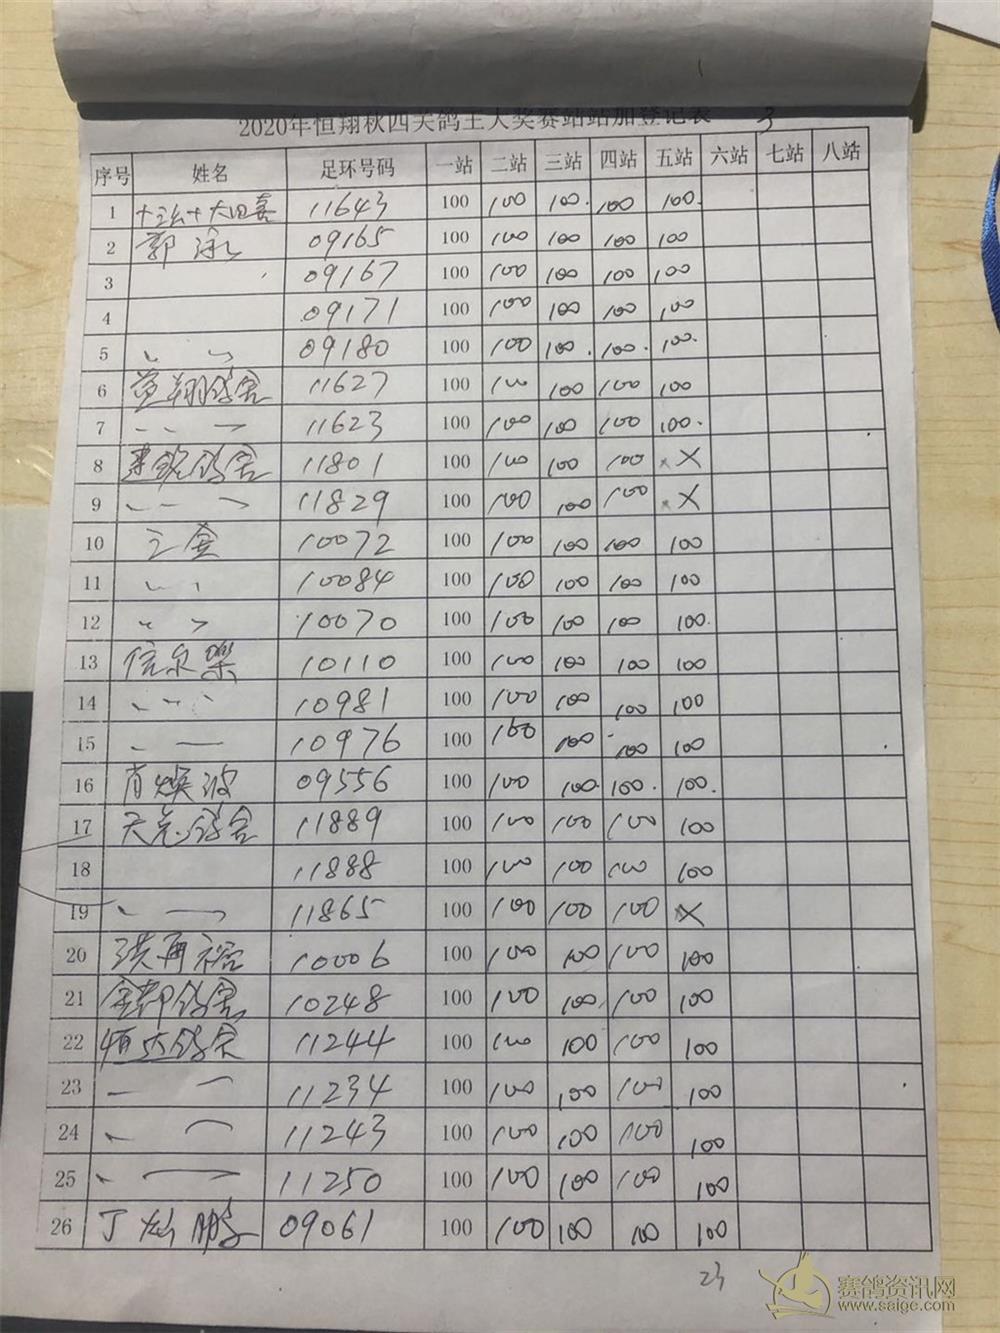 2020年恒翔秋四关鸽王大奖赛站站加登记表 3
序号 姓名 足环号码 一站 二站 三站 四站 五站 六站 七站 八站
1 11643 100 100 100. 100 100.
2 郭泳 09165 100 100 100 100 100
3 09167 100 100 100 100 100
4 09171 100 100 100 100 100
5 〃 〃 09180 100 100 100. 100. 100.
6 翔鸽舍 11627 100 100 100 100 100
7 〃 〃 11623 100 100 100 100 100.
8 鸽舍 11801 100 100 100 100 X
9 〃 〃 11829 100 100 100 100 X
10 王金 10072 100 100 100 100 100
11 〃 〃 10084 100 100 100 100 100
12 〃 〃 10070 100 100 100 100 100.
13 信永 10110 100 100 100 100 100
14 〃 〃 10981 100 100 100 100 100
15 〃 〃 10976 100 100 100 100 100
16 肖焕波 09556 100 100 100. 100. 100.
17 鸽舍 11889 100 100 100 100 100
18 11888 100 100 100 100 100
19 〃 〃 11865 100 100 100 100 X
20 洪再裕 10006 100 100 100 100 100
21 金都鸽舍 10248 100 100 100 100 100
22 恒达鸽舍 11244 100 100 100 100 100
23 〃 〃 11234 100 100 100 100 100
24 〃 〃 11243 100 100 100 100 100
25 〃 〃 11250 100 100 100 100 100
26 丁灿鹏 09061 100 100 100 100 100
23
赛鸽资讯网
www.saige.com